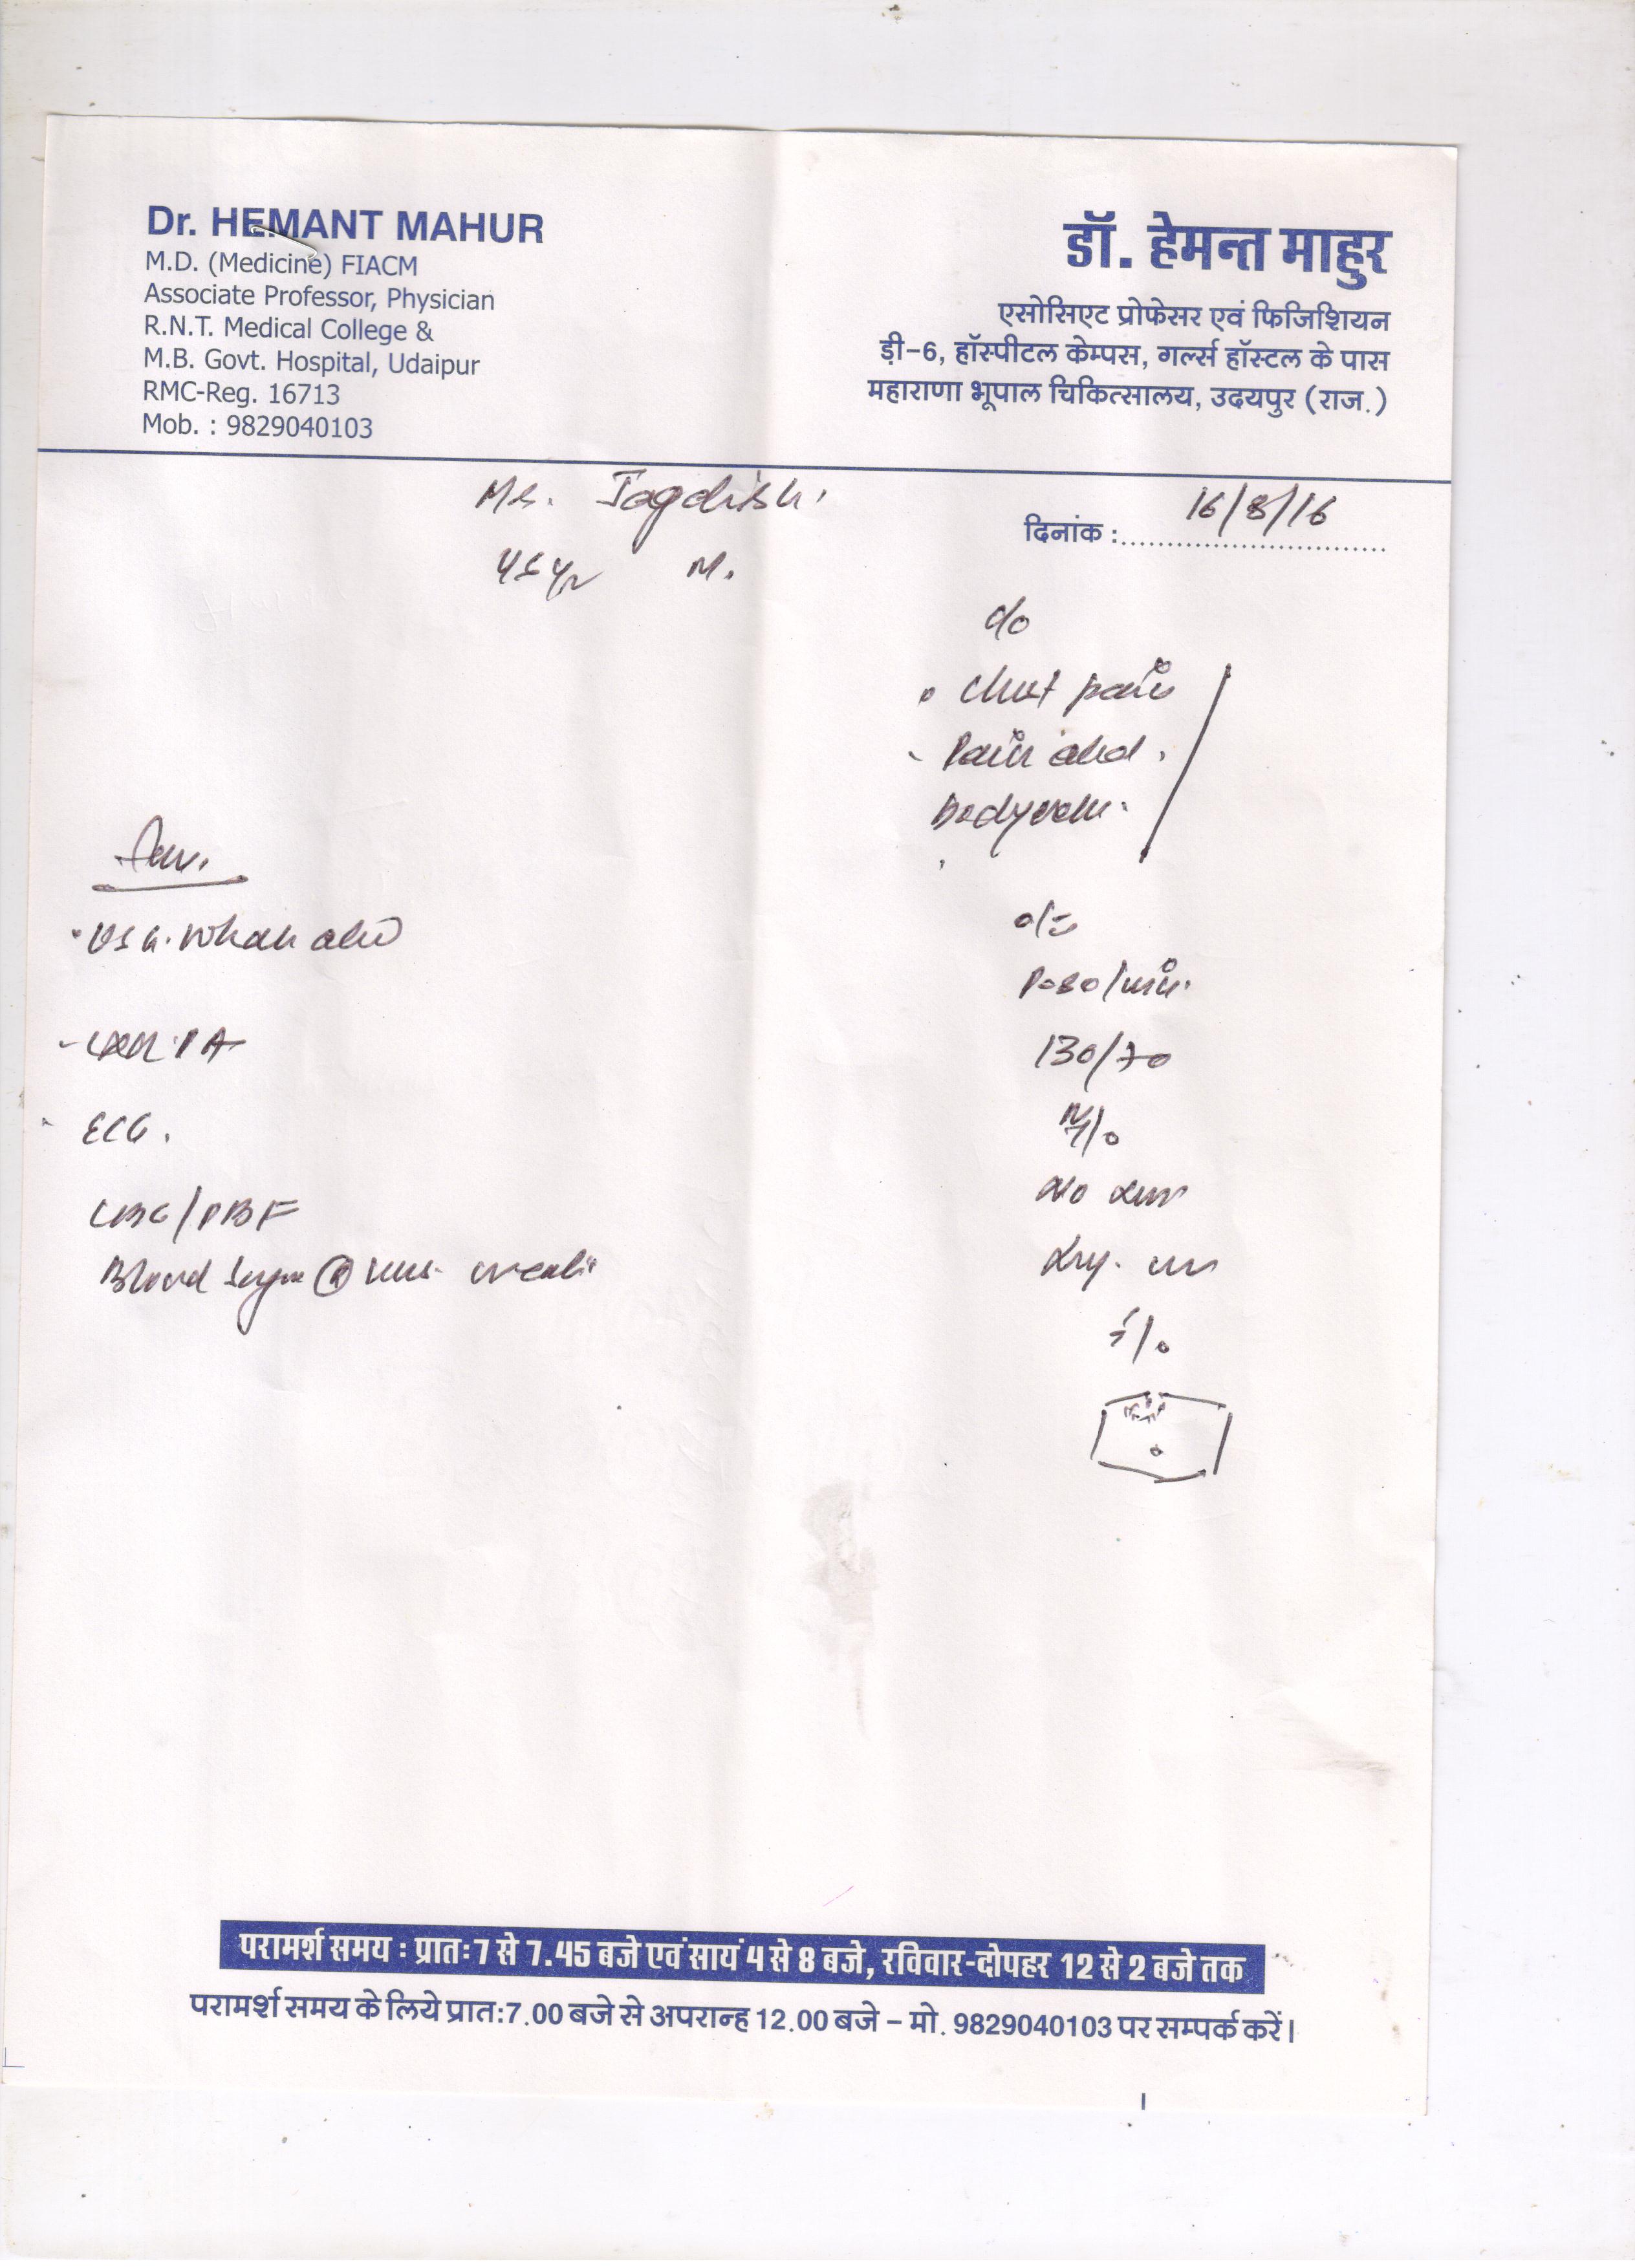 Dr. HEMANT MAHUR
M.D. (Medicine) FIACM
Associate Professor, Physician
R.N.T. Medical College &
M.B. Govt. Hospital, Udaipur
RMC-Reg. 16713
Mob. : 9829040103
डॉ. हेमन्त माहुर
एसोसिएट प्रोफेसर एवं फिजिशियन
ड़ी-6, हॉस्पीटल केम्पस, गर्ल्स हॉस्टल के पास
महाराणा भूपाल चिकित्सालय, उदयपुर (राज.)
Mr. Jagdish
दिनांक : 16/8/16
45 yr M.
c/o
Chest pain
Pain abd.
Bodyache.
Inv.
USG. Whole abd
CXR PA
ECG.
CBC/PBF
Blood Sugar
o/E
P-80/min.
130/70
परामर्श समय : प्रातः 7 से 7.45 बजे एवं सायं 4 से 8 बजे, रविवार-दोपहर 12 से 2 बजे तक
परामर्श समय के लिये प्रात:7.00 बजे से अपरान्ह 12.00 बजे – मो. 9829040103 पर सम्पर्क करें।